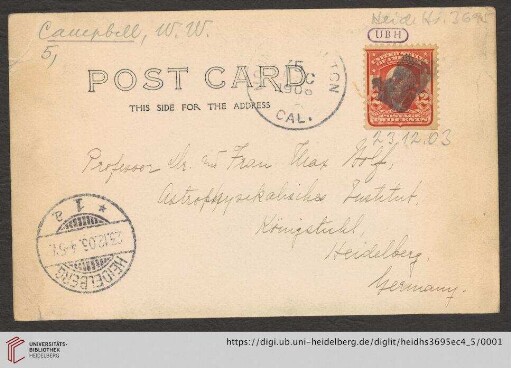 Campbell, W. W.
5,
Heid. Hs. 3695
UBH
POST CARD
THIS SIDE FOR THE ADDRESS
TON
CAL.
23.12.03
Professor Dr. und Frau Max Wolf,
Astrophysikalisches Institut,
Königstuhl,
Heidelberg,
Germany.
HEIDELBERG
23.12.03.4-5
* 1 a
UNIVERSITÄTS-
BIBLIOTHEK
HEIDELBERG
https://digi.ub.uni-heidelberg.de/diglit/heidhs3695ec4_5/0001